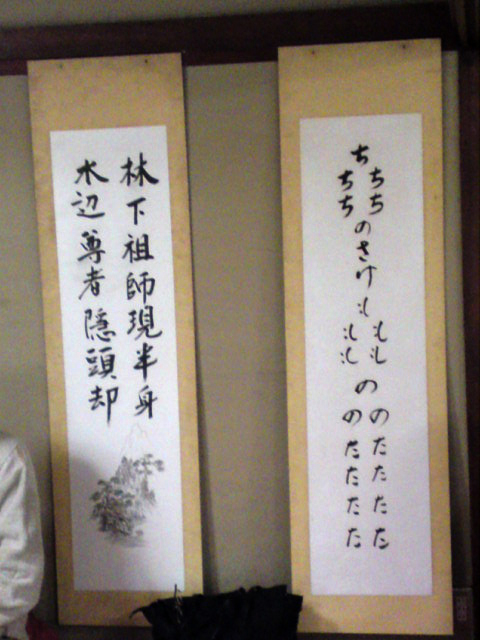 ち
ちち
ちち
のさけ
も
もも
もも
の
のたたたた
のたたたた
林下祖師現半身
水辺尊者隠頭却